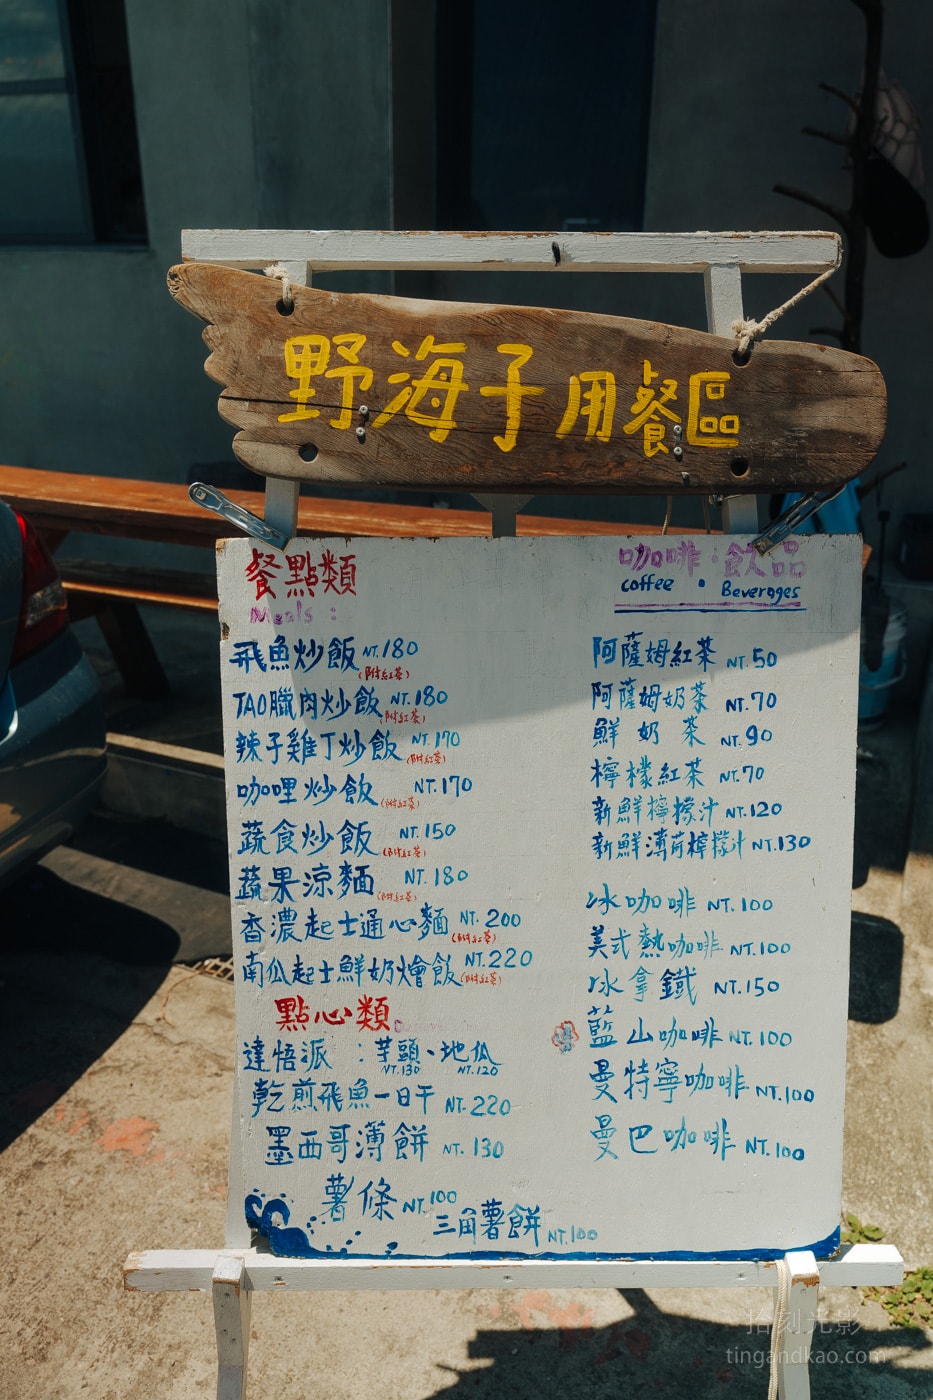 野海子用餐區
餐點類
Meals :
飛魚炒飯 NT.180
(附紅茶)
TAO臘肉炒飯 NT.180
(附紅茶)
辣子雞丁炒飯 NT.170
(附紅茶)
咖哩炒飯 NT.170
(附紅茶)
蔬食炒飯 NT.150
(附紅茶)
蔬果涼麵 NT.180
(附紅茶)
香濃起士通心麵 NT.200
(附紅茶)
南瓜起士鮮奶燴飯 NT.220
(附紅茶)
點心類
達悟派 : 芋頭、地瓜
NT.130 NT.120
乾煎飛魚一日干 NT.220
墨西哥薄餅 NT.130
薯條 NT.100
三角薯餅 NT.100
咖啡·飲品
coffee • Beverages
阿薩姆紅茶 NT.50
阿薩姆奶茶 NT.70
鮮奶茶 NT.90
檸檬紅茶 NT.70
新鮮檸檬汁 NT.120
新鮮薄荷檸檬汁 NT.130
冰咖啡 NT.100
美式熱咖啡 NT.100
冰拿鐵 NT.150
藍山咖啡 NT.100
曼特寧咖啡 NT.100
曼巴咖啡 NT.100
拾刻光影
tingandkao.com